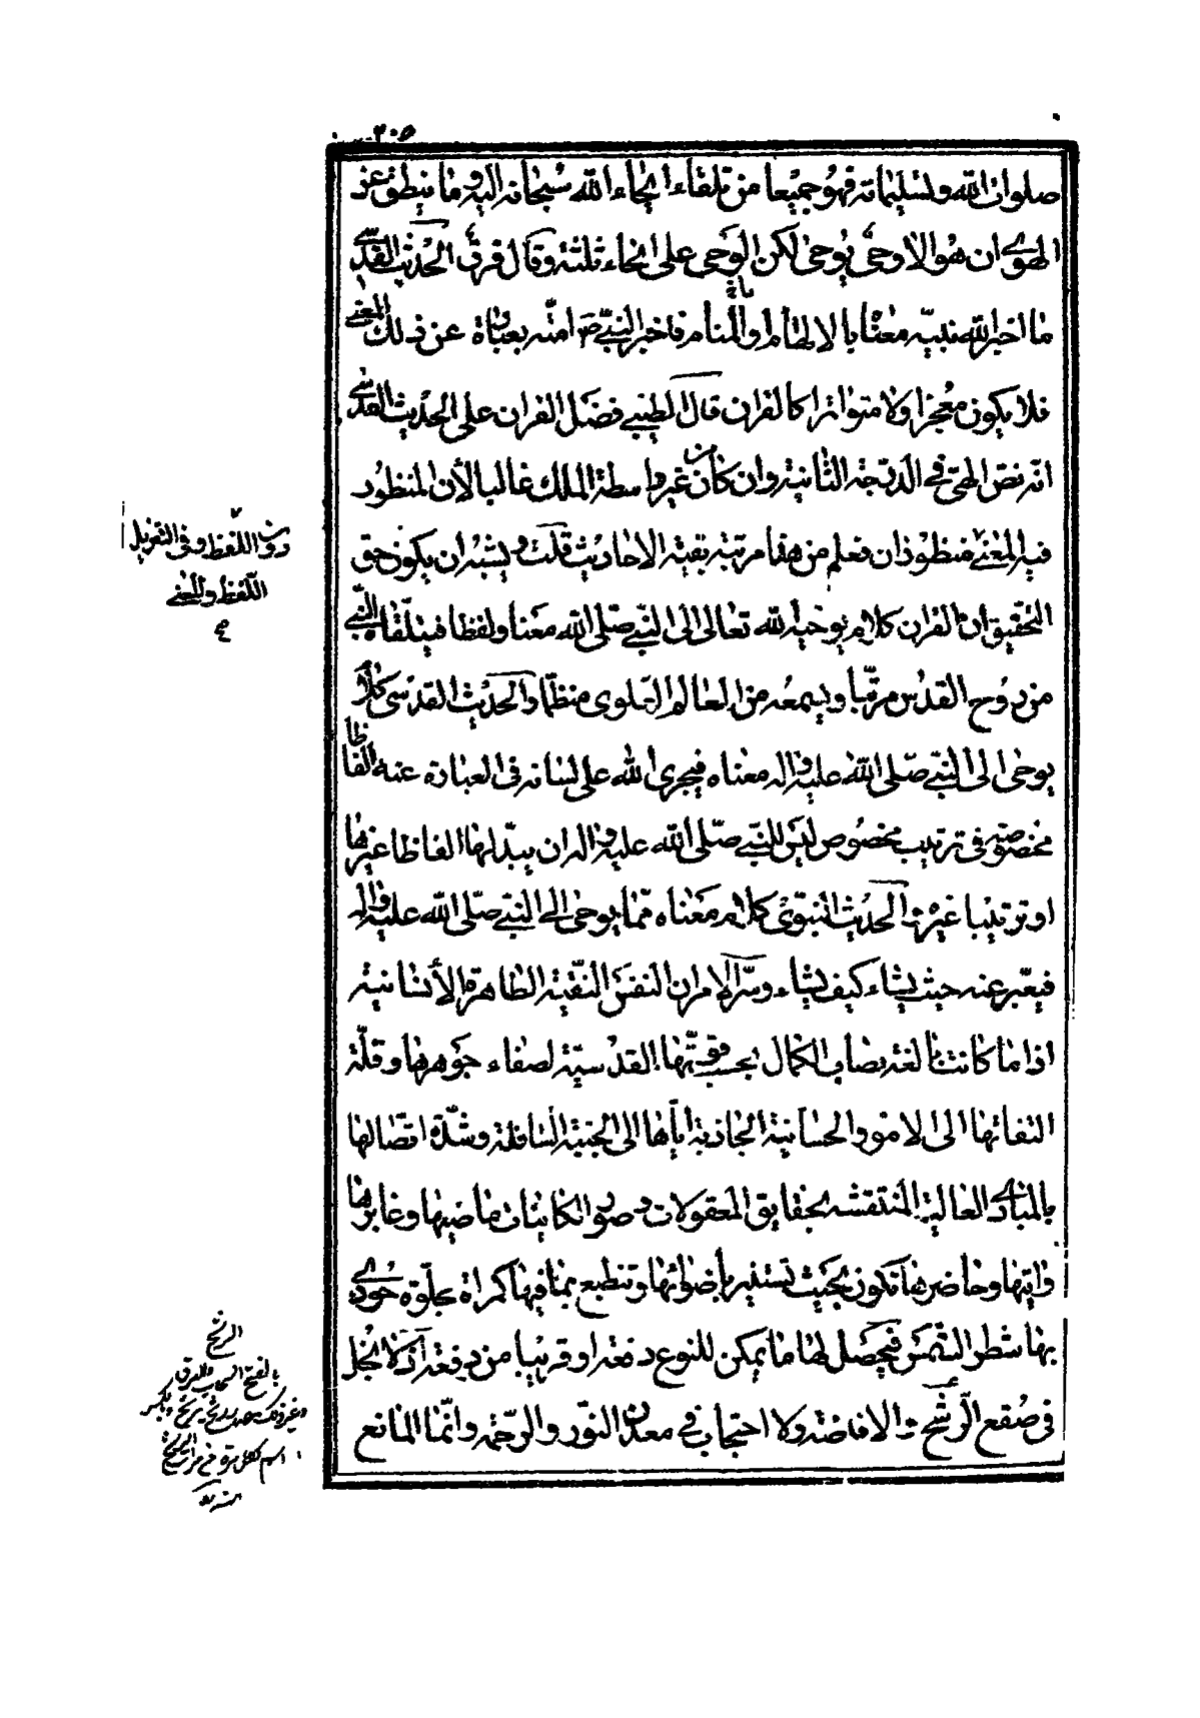 ٢٠٥
صلوات الله وتسليماته فهو جميعا من تلقاء ايحاء الله سبحانه اليه وما ينطق عن
الهوى ان هو الا وحى يوحى لكن الوحى على انحاء ثلثة وقال فرق الحديث القدسى
ما اخبر الله نبيه معناه بالالهام او بالمنام فاخبر النبى ص امته بعبارة عن ذلك المعنى
فلا يكون معجزا ولا متواترا كالقران قال الطيبى فضل القران على الحديث القدسى
انه نص الهى فى الدرجة الثانية وان كان من غير واسطة الملك غالبا لأن المنظور
فيه المعنى منظوران فعلم من هذا مرتبة بقية الاحاديث قلت ويشبه ان يكون حق
التحقيق ان القران كلام يوحيه الله تعالى الى النبى صلى الله معنا ولفظا فيتلقاه النبى
من روح القدس مرتبا ويسمعه من العالم العلوى منظما والحديث القدسى كلام
يوحى الى النبى صلى الله عليه واله معناه فيجرى الله على لسانه فى العبارة عنه الفاظا
مخصوصة فى ترتيب مخصوص ليس للنبى صلى الله عليه واله ان يبدلها الفاظا غيرها
او ترتيبا غيره والحديث النبوى كلام معناه مما يوحى الى النبى صلى الله عليه واله
فيعبر عنه حيث يشاء كيف يشاء وسر الامر ان النفس النقية الطاهرة الأنسانية
اذا ما كانت بالغة نصاب الكمال بحسب قوتها القدسية لصفاء جوهرها وقلة
التفاتها الى الامور الجسمانية الجاذبة اياها الى الجنبة السافلة وشدة اتصالها
بالمبادى العالية المنتقشة بحقايق المعقولات وصور الكاينات ماضيها وغابرها
واتيها وحاضرها تكون بحيث تستنير بأضوائها وتنطبع بما فيها كمراة مجلوة حوذى
بها شطر الشمس فيحصل لها ما يمكن للنوع دفعة او قريبا من دفعة اذ لا بخل
فى صقع الرشح والافاضة ولا احتجاب فى معدن النور والرحمة وانما المانع
دون اللفظ وفى التنزيل
اللفظ والمعنى
الرشح
بالفتح